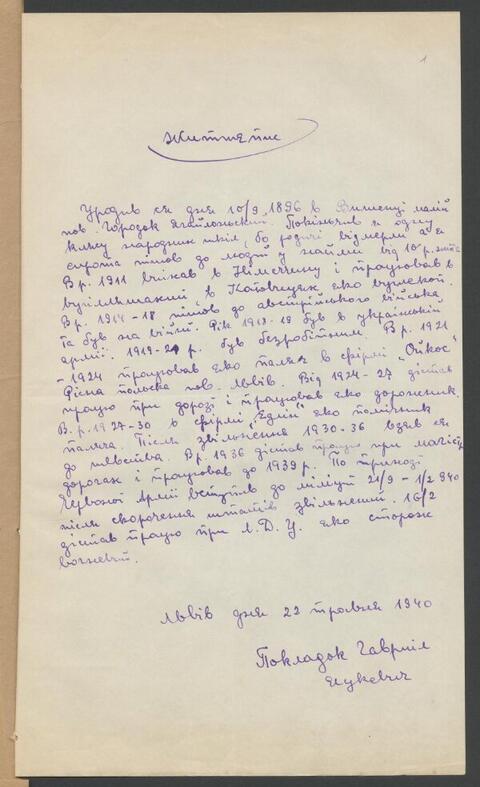 1
Життєпис
Уродив ся дня 10/9 1896 в Вишеньці малій
пов. Городок Ягайлонський. Покінчив я одну
клясу народних шкіл, бо родичі відмерли а я
сирота пішов до людей у найми від 10 р. життя
В р. 1911 виїхав в Німеччину і працював в
в Катовицях яко
В р. 1914-18 пішов до австрійського війська
та був на війні. Рік 1918-19 був в українській
армії. 1919-21 р. був безробітним. В р. 1921
-1924 працював яко паляч в фірмі "Ойкос"
Рісна польска пов. Львів. Від 1924-27 дістав
працю при дорозі і працював яко дорожник.
В. р. 1927-30 в фірмі яко помічник
паляча. Після звільнення 1930-36 взяв ся
до шевства. В р. 1936 дістав працю при магістр
дорогах і працював до 1939 р. По приході
Червоної Армії вступив до міліції 21/9 - 1/2 940
після скорочення штатів звільнений. 16/2
дістав працю при Л.Д.У. яко сторож
Львів дня 22 травня 1940
Покладок Гавриїл